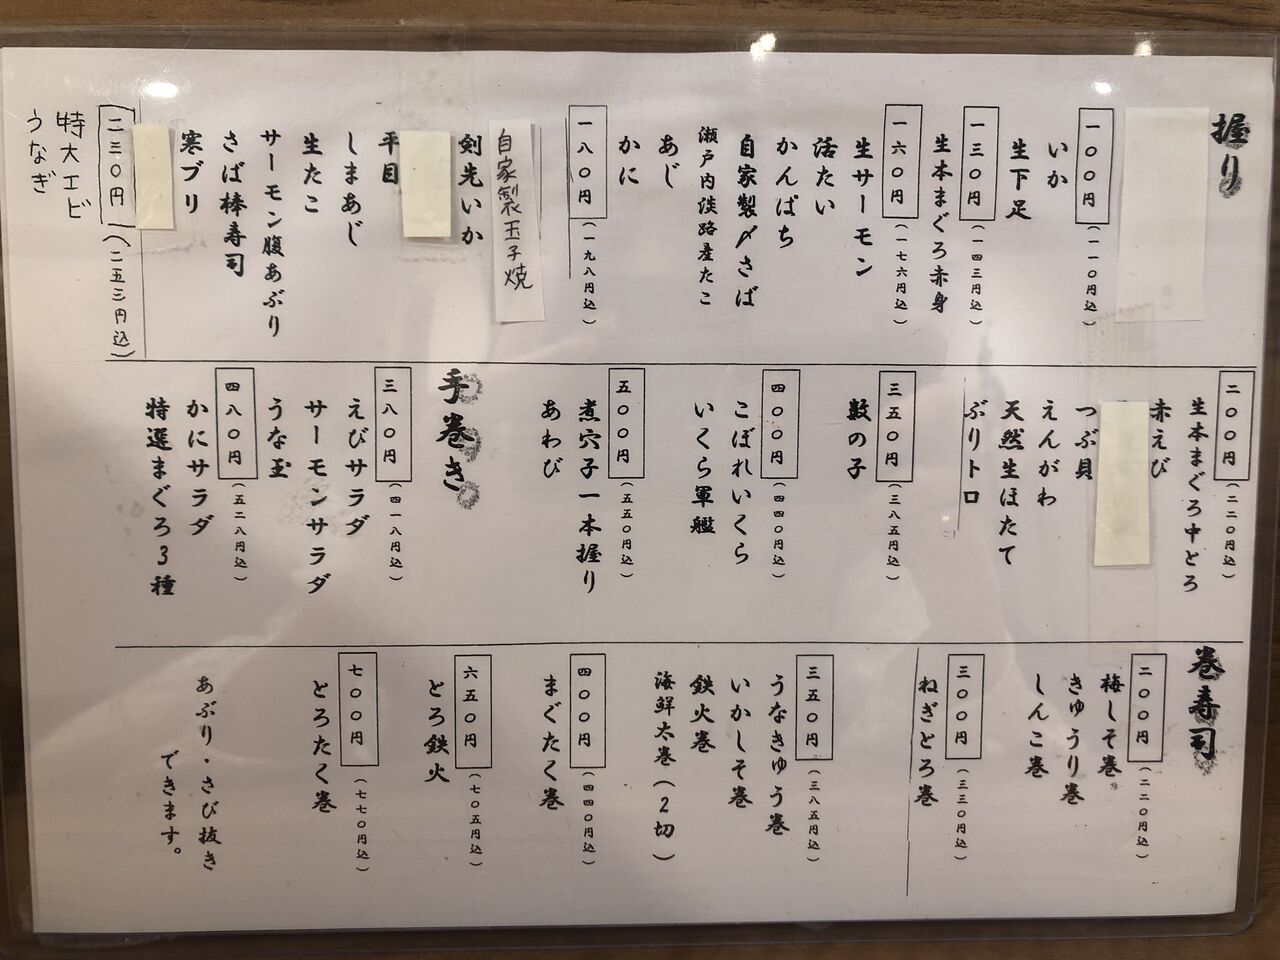 握り
一〇〇円(一一〇円込)
いか
生下足
一三〇円(一四三円込)
生本まぐろ赤身
一六〇円(一七六円込)
生サーモン
活たい
かんぱち
自家製〆さば
瀬戸内淡路産たこ
あじ
かに
一八〇円(一九八円込)
自家製玉子焼
剣先いか
平目
しまあじ
生たこ
サーモン腹あぶり
さば棒寿司
寒ブリ
二三〇円(二五三円込)
特大エビ
うなぎ
二〇〇円(二二〇円込)
生本まぐろ中とろ
赤えび
つぶ貝
えんがわ
天然生ほたて
ぶりトロ
三五〇円(三八五円込)
数の子
四〇〇円(四四〇円込)
こぼれいくら
いくら軍艦
五〇〇円(五五〇円込)
煮穴子一本握り
あわび
手巻き
三八〇円(四一八円込)
えびサラダ
サーモンサラダ
うな玉
四八〇円(五二八円込)
かにサラダ
特選まぐろ3種
巻寿司
二〇〇円(二二〇円込)
梅しそ巻
きゅうり巻
しんこ巻
三〇〇円(三三〇円込)
ねぎとろ巻
三五〇円(三八五円込)
うなきゅう巻
いかしそ巻
鉄火巻
海鮮太巻(2切)
四〇〇円(四四〇円込)
まぐたく巻
六五〇円(七〇五円込)
とろ鉄火
七〇〇円(七七〇円込)
とろたく巻
あぶり・さび抜き
できます。